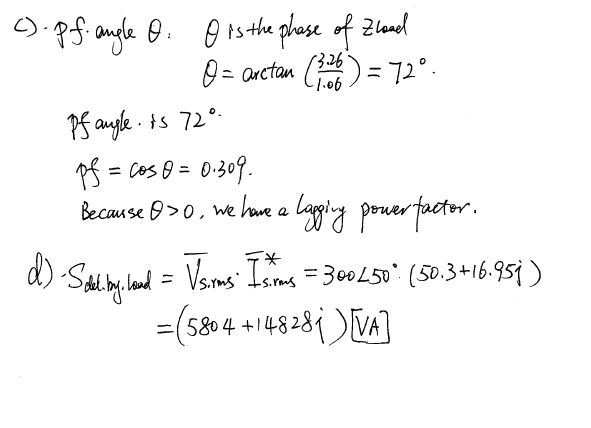 c). pf. angle θ: θ is the phase of Zload
θ = arctan (3.26/1.06) = 72°.
pf angle. is 72°.
pf = cosθ = 0.309.
Because θ>0, we have a lagging power factor.
d) - Sdel.by.load = V̅s.rms · I̅*s.rms = 300∠50° · (50.3+16.95j)
= (5804 + 14828j) [VA]